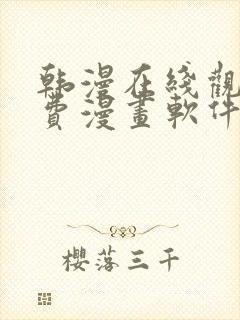 韩漫在线觀
費漫畫軟件
櫻落三千